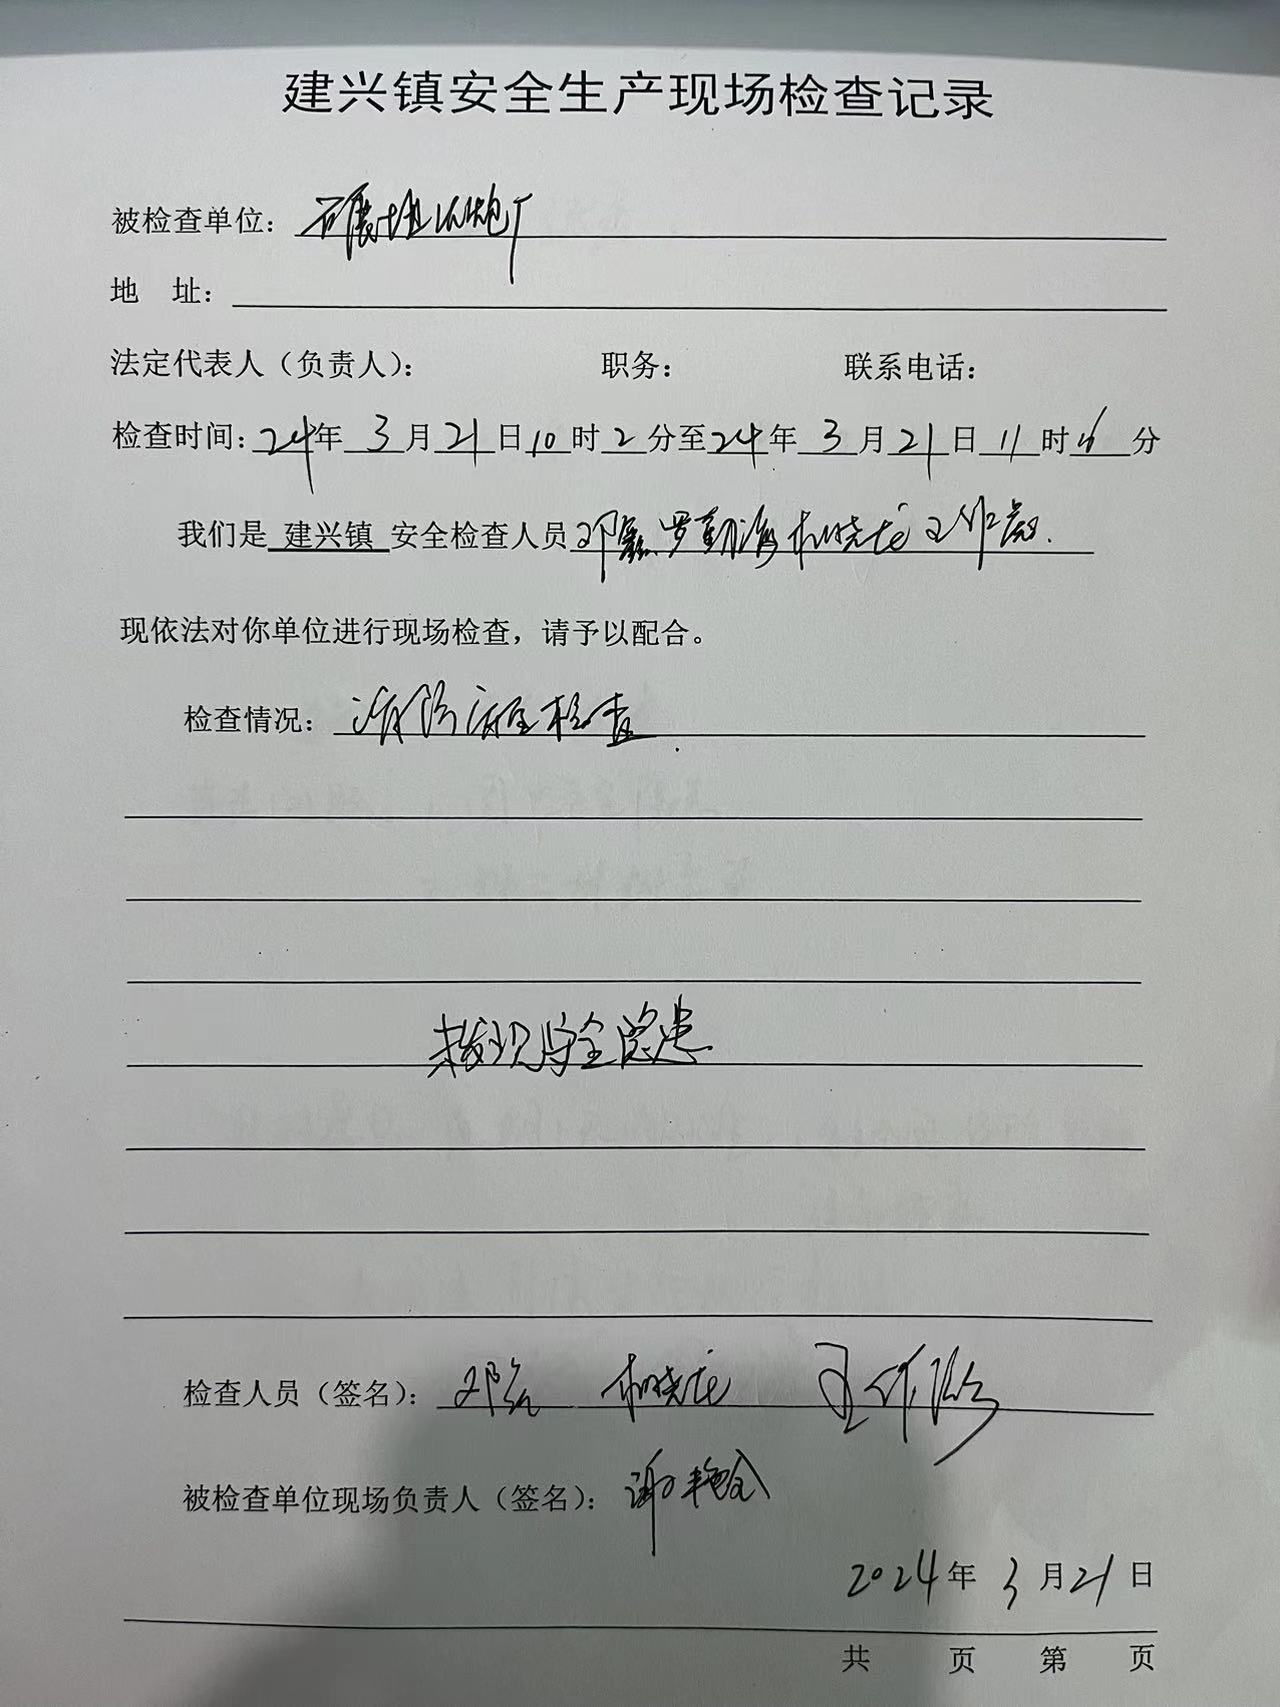 建兴镇安全生产现场检查记录
被检查单位：
地 址：
法定代表人（负责人）： 职务： 联系电话：
检查时间：24年3月21日10时2分至24年3月21日11时6分
我们是 建兴镇 安全检查人员 邓 罗 晓龙 王作
现依法对你单位进行现场检查，请予以配合。
检查情况：消防安全检查
未发现安全隐患
检查人员（签名）：邓 晓龙 王作
被检查单位现场负责人（签名）：谢艳
2024年3月21日
共 页 第 页